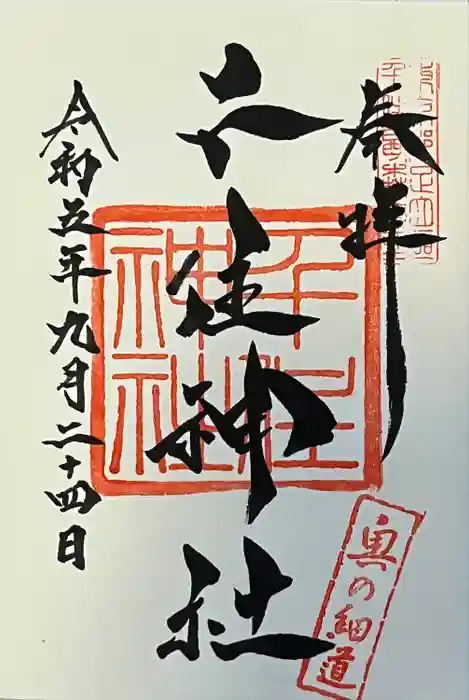 奉拝
千住神社
令和五年九月二十四日
千住
神社
奥の細道